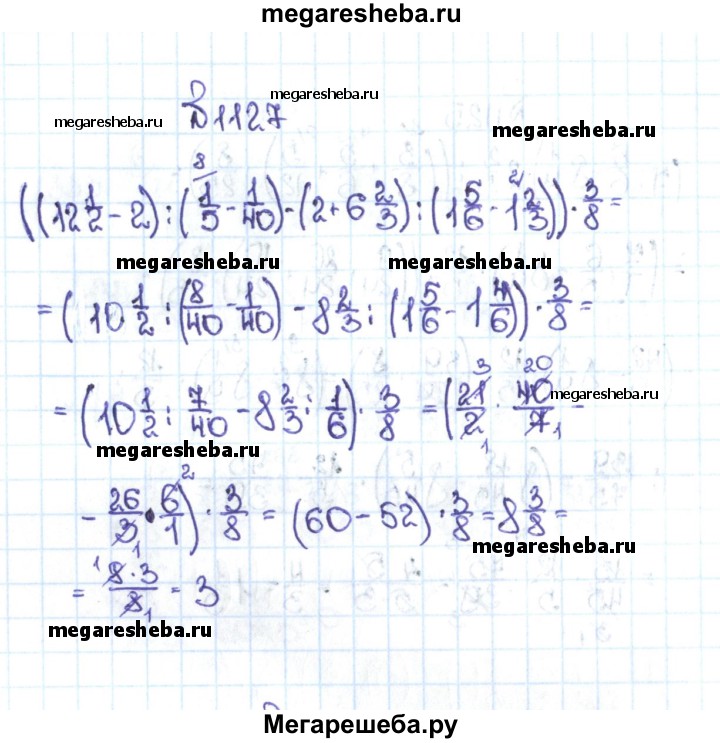 megaresheba.ru
megaresheba.ru
megaresheba.ru
№1127
megaresheba.ru
((12 1/2 - 2) : (1/5 - 1/40) - (2 + 6 2/3) : (1 5/6 - 1 2/3)) · 3/8 =
megaresheba.ru megaresheba.ru
= (10 1/2 : (8/40 - 1/40) - 8 2/3 : (1 5/6 - 1 4/6)) · 3/8 =
megaresheba.ru
= (10 1/2 : 7/40 - 8 2/3 : 1/6) · 3/8 = (21/2 · 40/7 -
megaresheba.ru
- 26/3 · 6/1) · 3/8 = (60 - 52) · 3/8 = 8 3/8 =
megaresheba.ru
= 8·3/8 = 3
megaresheba.ru
Мегарешеба.ру